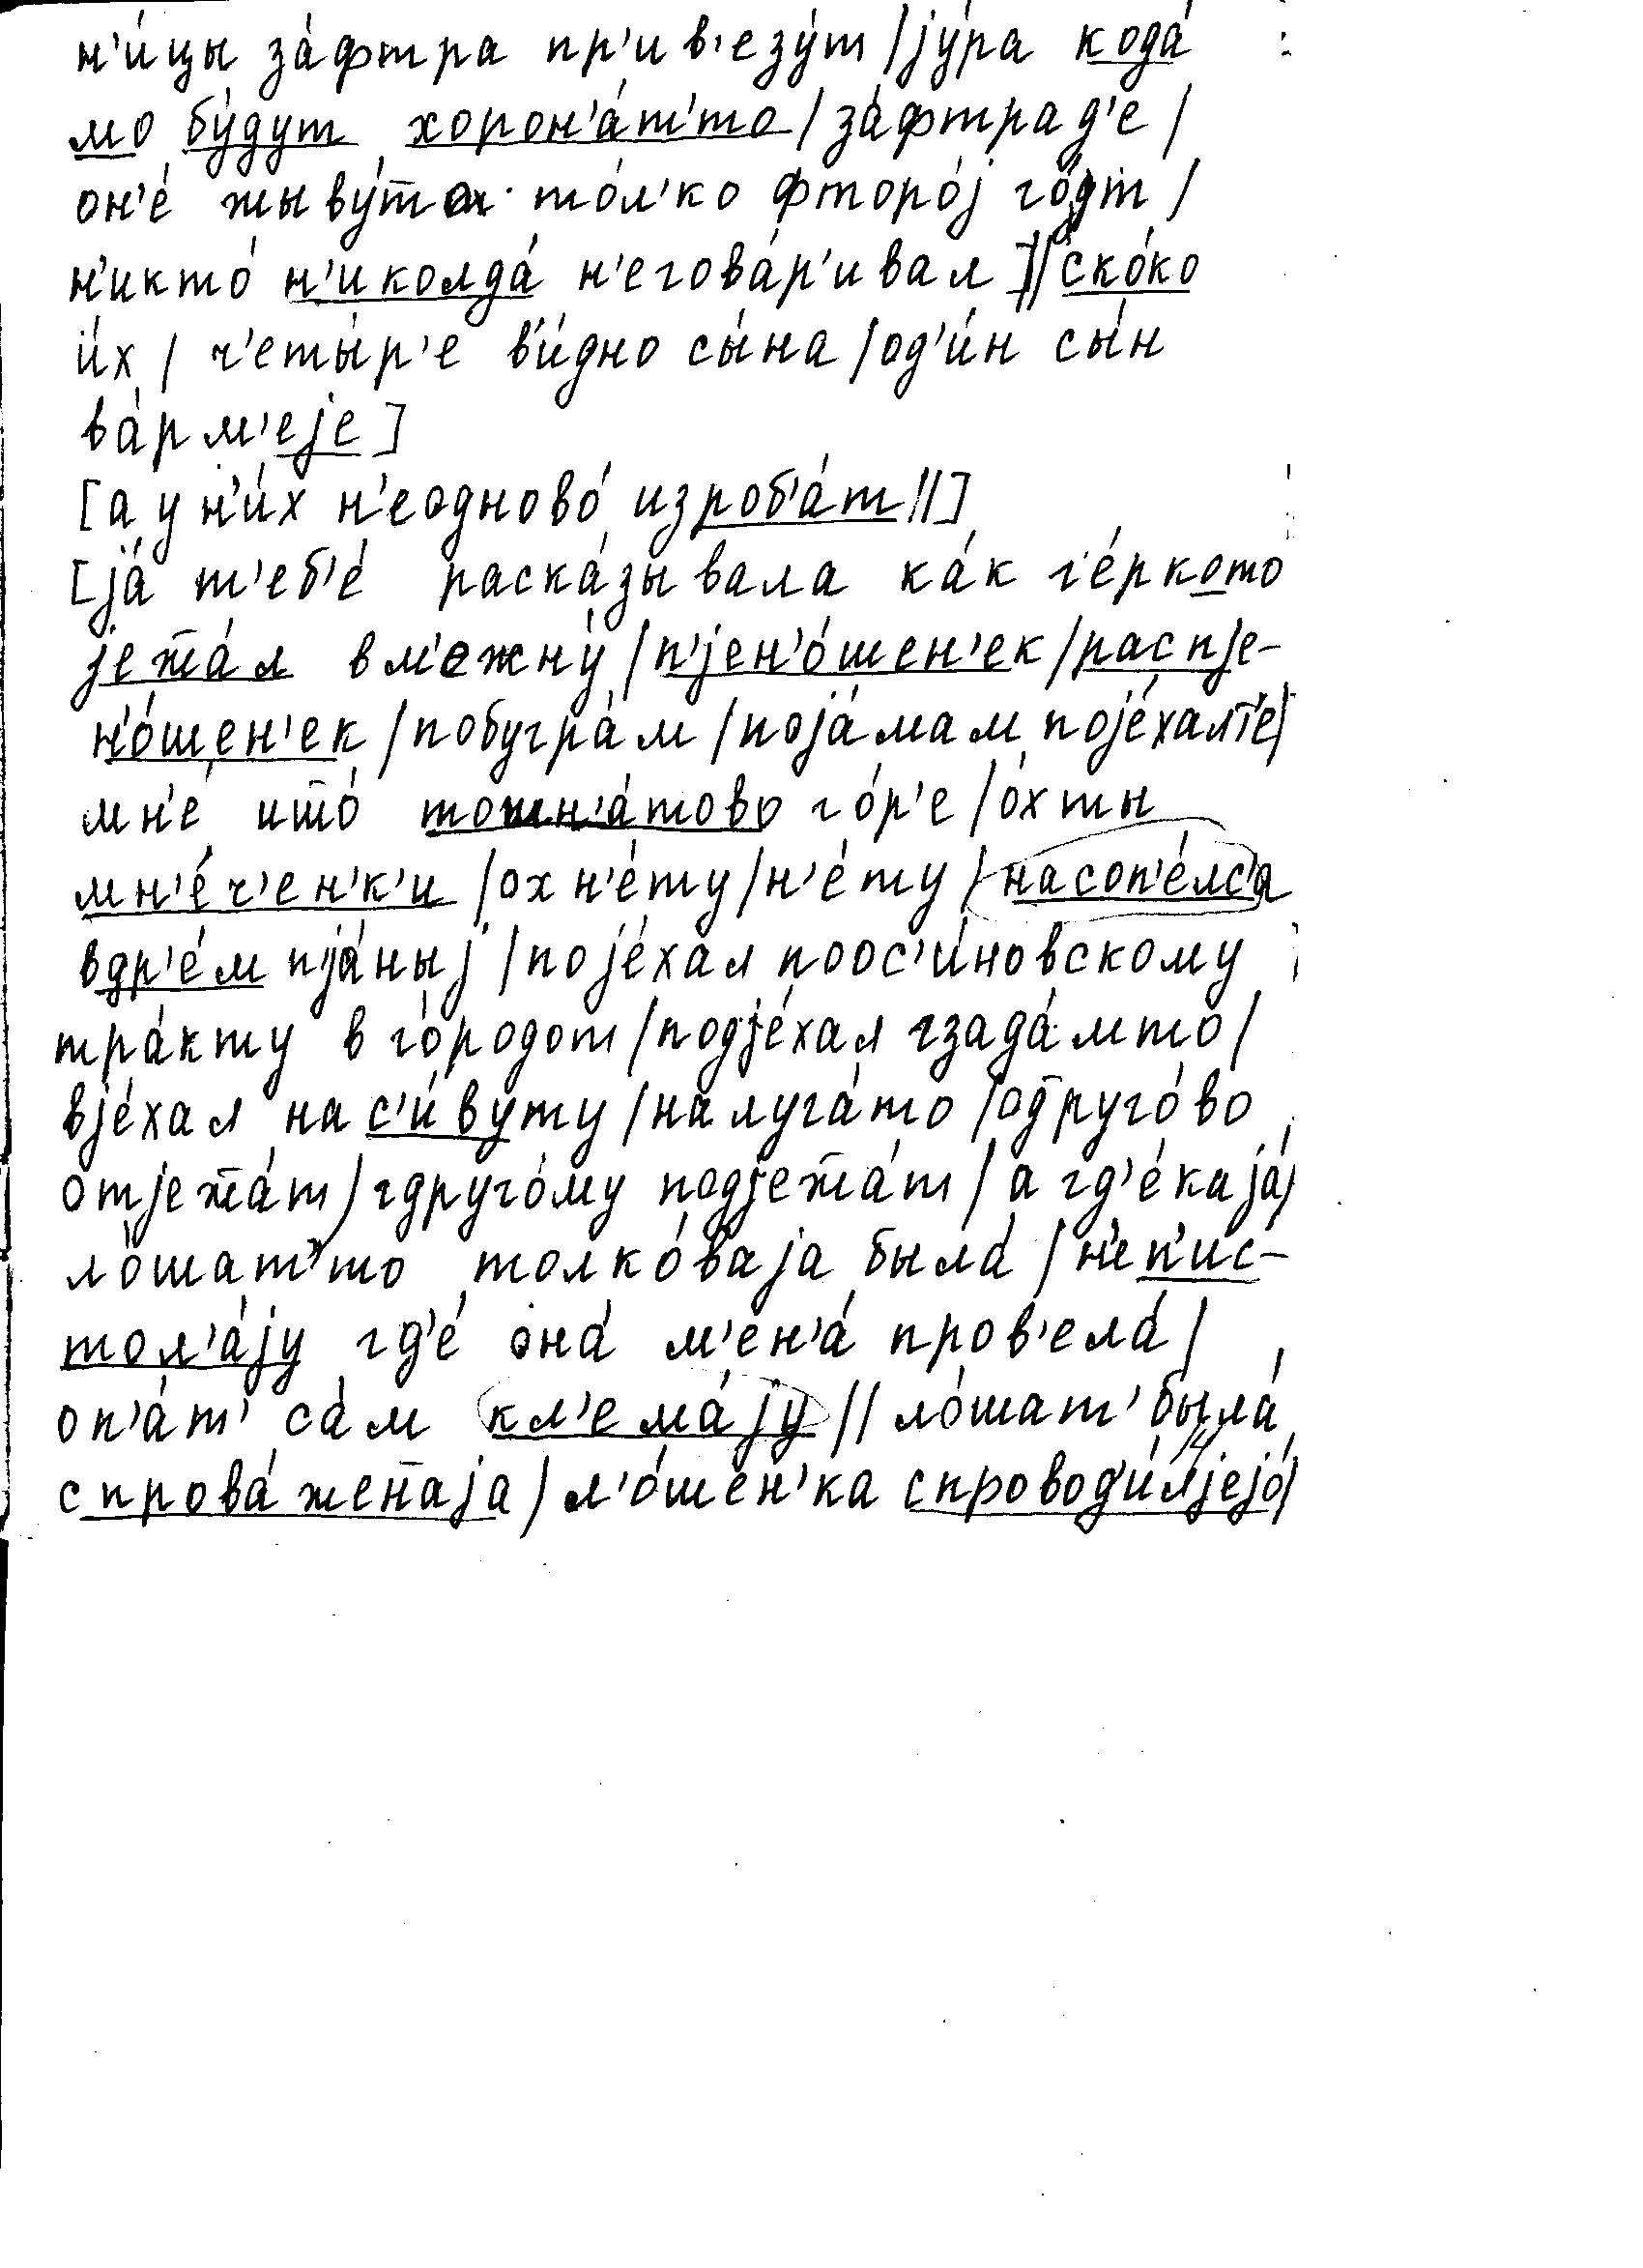 н'и́цы за́фтра пр'ив'езу́т/ју́ра кода́
мо бу́дут хорон'а́т'то/за́фтрад'е/
он'е́ жыву́т то́л'ко фторо́ј го́дт/
н'икто́ н'иколда́ н'егова́р'ивал]//[ско́ко
и́х/ ч'еты́р'е в'и́дно сы́на/од'и́н сы́н
ва́рм'еје]
[а у н'и́х н'еодново́ изроб'а́т//]
[ја́ т'еб'е́ раска́зывала ка́к г'е́ркото
јежа́л вм'ежну́/п'јен'о́шен'ек/распје-
н'о́шен'ек/побугра́м/поја́мам појéхалт'е/
мн'е́ што́ тошн'а́тово го́р'е/о́хты
мн'е́ч'ен'к'и/ох н'е́ту/н'е́ту/насоп'е́лс'а
вдр'е́м пја́ныј/поје́хал поос'и́новскому
тра́кту в го́родот/подје́хал гзада́мто/
вје́хал нас'и́вуту/налуга́то/одруго́во
отјежа́т/гдруго́му подјежа́т/а гд'е́каја́/
ло́шат'то толко́ваја была́/н'еп'ис-
тол'а́ју гд'е́ она́ м'ен'а́ пров'ела́/
оп'а́т' са́м кл'ема́ју//ло́шат' была́
спрова́женаја/л'о́шен'ка спровод'и́лјејо́/